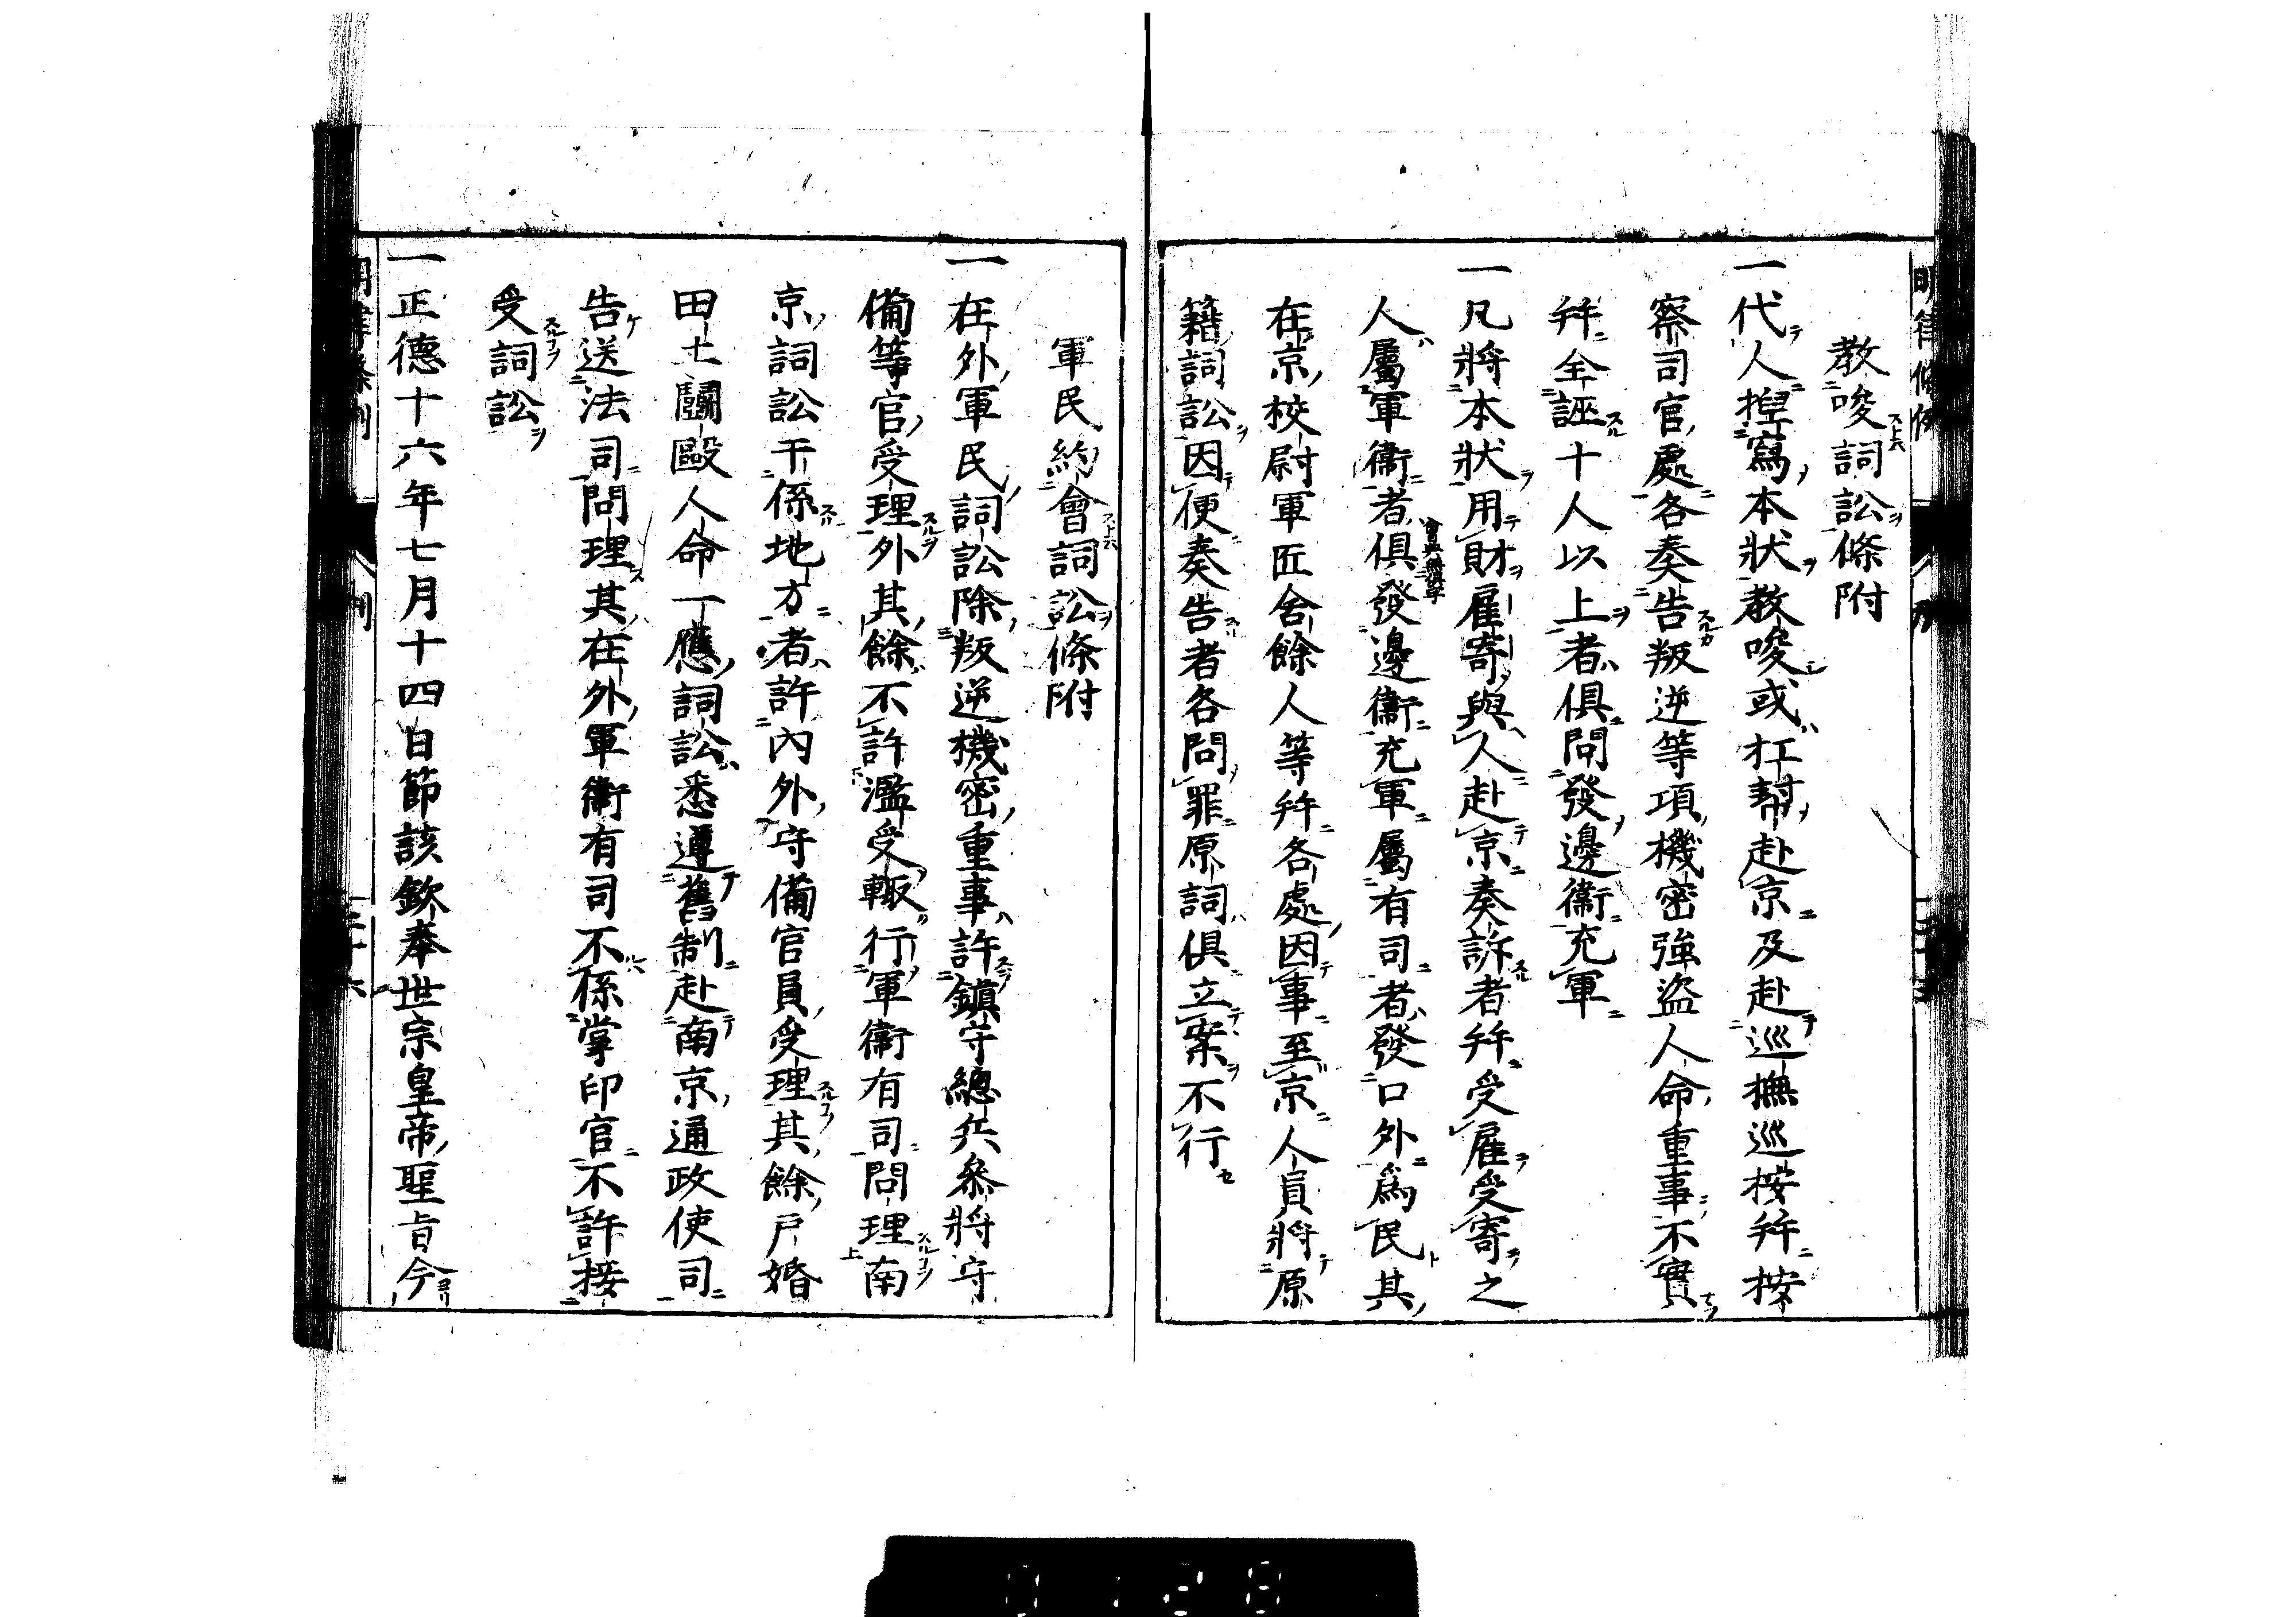 教唆詞訟條附
一代人揑寫本狀教唆或杠幇赴京及赴巡撫巡按幷按
察司官處各奏告叛逆等項機密強盜人命重事不實
幷全誣十人以上者俱問發邊衞充軍
一凡將本狀用財雇寄與人赴京奏訴者幷受雇受寄之
人屬軍衞者俱發邊衞充軍屬有司者發口外爲民其
在京校尉軍匠舍餘人等幷各處因事至京人員將原
籍詞訟因便奏告者各問罪原詞俱立案不行
軍民約會詞訟條附
一在外軍民詞訟除叛逆機密重事許鎮守總兵參將守
備等官受理外其餘不許濫受輙行軍衞有司問理南
京詞訟干係地方者許內外守備官員受理其餘戶婚
田土鬭毆人命一應詞訟悉遵舊制赴南京通政使司
告送法司問理其在外軍衞有司不係掌印官不許接
受詞訟
一正德十六年七月十四日節該欽奉世宗皇帝聖旨今